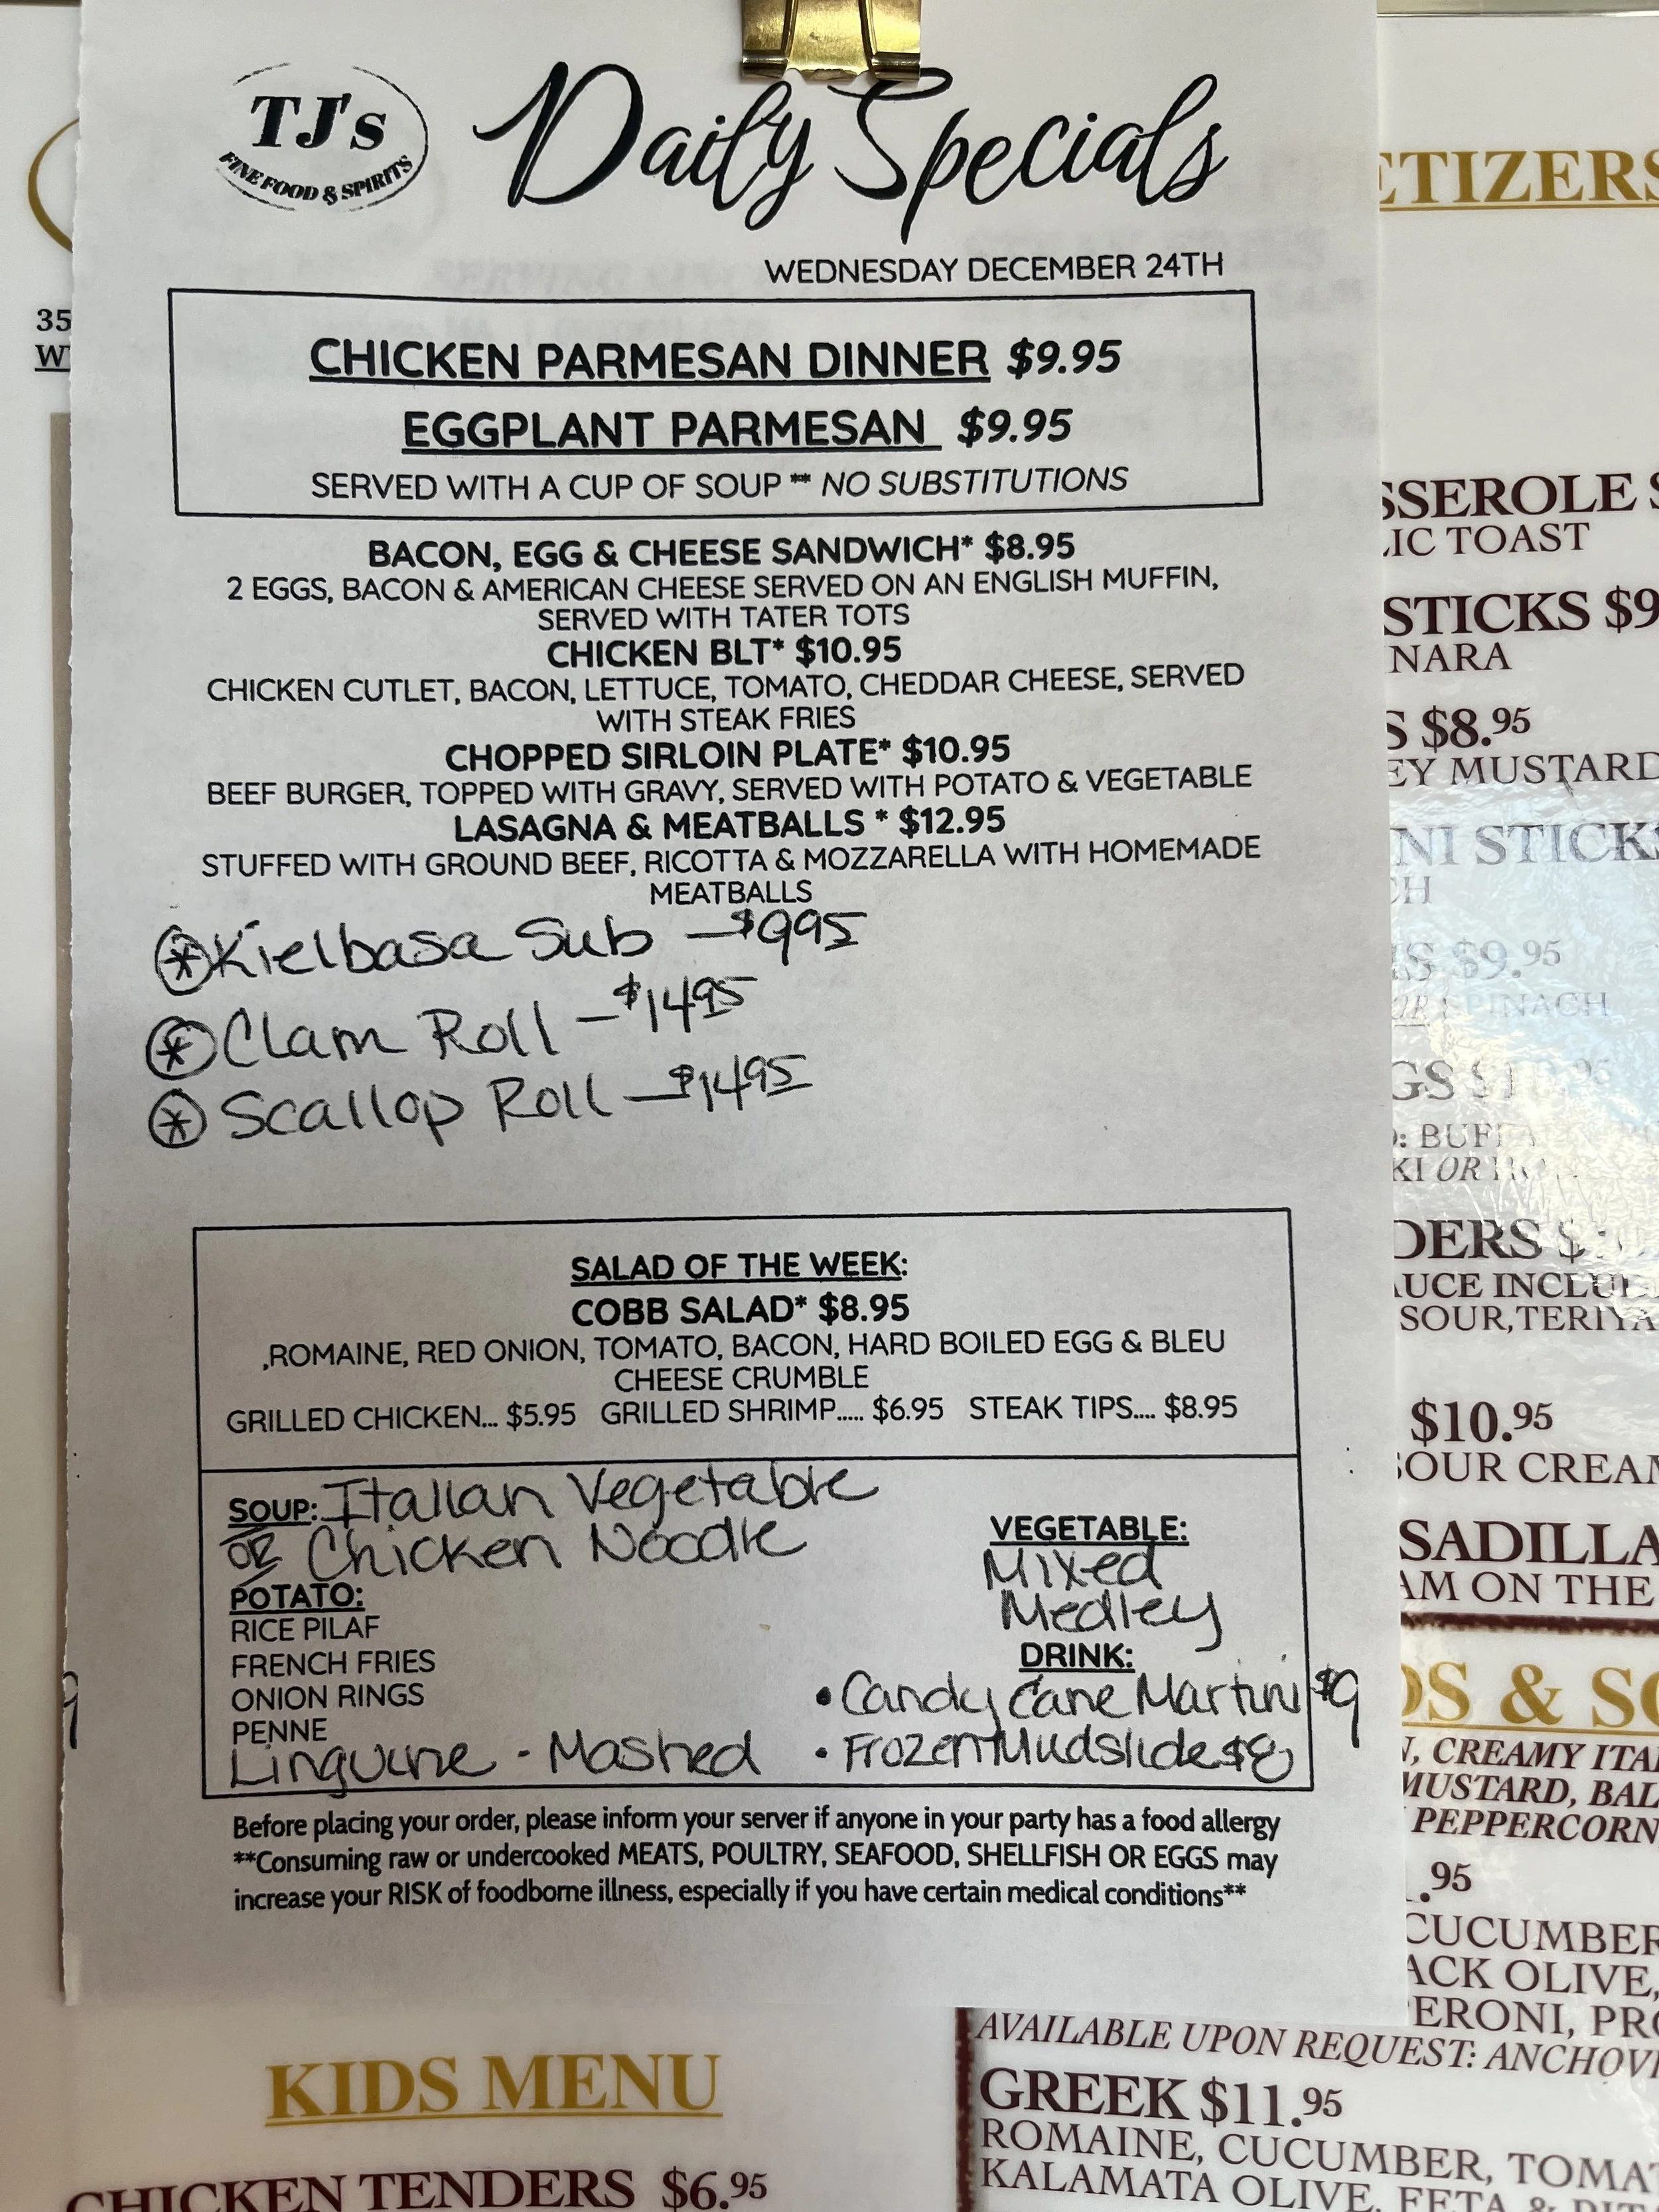 TJ's
FINE FOOD & SPIRITS
Daily Specials
WEDNESDAY DECEMBER 24TH
CHICKEN PARMESAN DINNER $9.95
EGGPLANT PARMESAN $9.95
SERVED WITH A CUP OF SOUP ** NO SUBSTITUTIONS
BACON, EGG & CHEESE SANDWICH* $8.95
2 EGGS, BACON & AMERICAN CHEESE SERVED ON AN ENGLISH MUFFIN,
SERVED WITH TATER TOTS
CHICKEN BLT* $10.95
CHICKEN CUTLET, BACON, LETTUCE, TOMATO, CHEDDAR CHEESE, SERVED
WITH STEAK FRIES
CHOPPED SIRLOIN PLATE* $10.95
BEEF BURGER, TOPPED WITH GRAVY, SERVED WITH POTATO & VEGETABLE
LASAGNA & MEATBALLS * $12.95
STUFFED WITH GROUND BEEF, RICOTTA & MOZZARELLA WITH HOMEMADE
MEATBALLS
* Kielbasa Sub — $995
* Clam Roll — $1495
* Scallop Roll — $1495
SALAD OF THE WEEK:
COBB SALAD* $8.95
,ROMAINE, RED ONION, TOMATO, BACON, HARD BOILED EGG & BLEU
CHEESE CRUMBLE
GRILLED CHICKEN... $5.95 GRILLED SHRIMP..... $6.95 STEAK TIPS.... $8.95
SOUP: Italian Vegetable
OR Chicken Noodle
POTATO:
RICE PILAF
FRENCH FRIES
ONION RINGS
PENNE
Linguine - Mashed
VEGETABLE:
Mixed
Medley
DRINK:
• Candy Cane Martini $9
• Frozen Mudslide $8
Before placing your order, please inform your server if anyone in your party has a food allergy
**Consuming raw or undercooked MEATS, POULTRY, SEAFOOD, SHELLFISH OR EGGS may
increase your RISK of foodborne illness, especially if you have certain medical conditions**
35
W
ETIZERS
SSEROLE S
LIC TOAST
STICKS $9
NARA
S $8.95
EY MUSTARD
NI STICKS
CH
$9.95
OR SPINACH
GS $1
: BUFF
KI OR
DERS $
AUCE INCLUD
SOUR, TERIYA
$10.95
SOUR CREAM
SADILLA
AM ON THE
DS & SO
N, CREAMY ITAL
MUSTARD, BAL
PEPPERCORN
.95
CUCUMBER
ACK OLIVE,
ERONI, PRO
AVAILABLE UPON REQUEST: ANCHOVI
GREEK $11.95
ROMAINE, CUCUMBER, TOMAT
KALAMATA OLIVE, FETA &
KIDS MENU
CHICKEN TENDERS $6.95